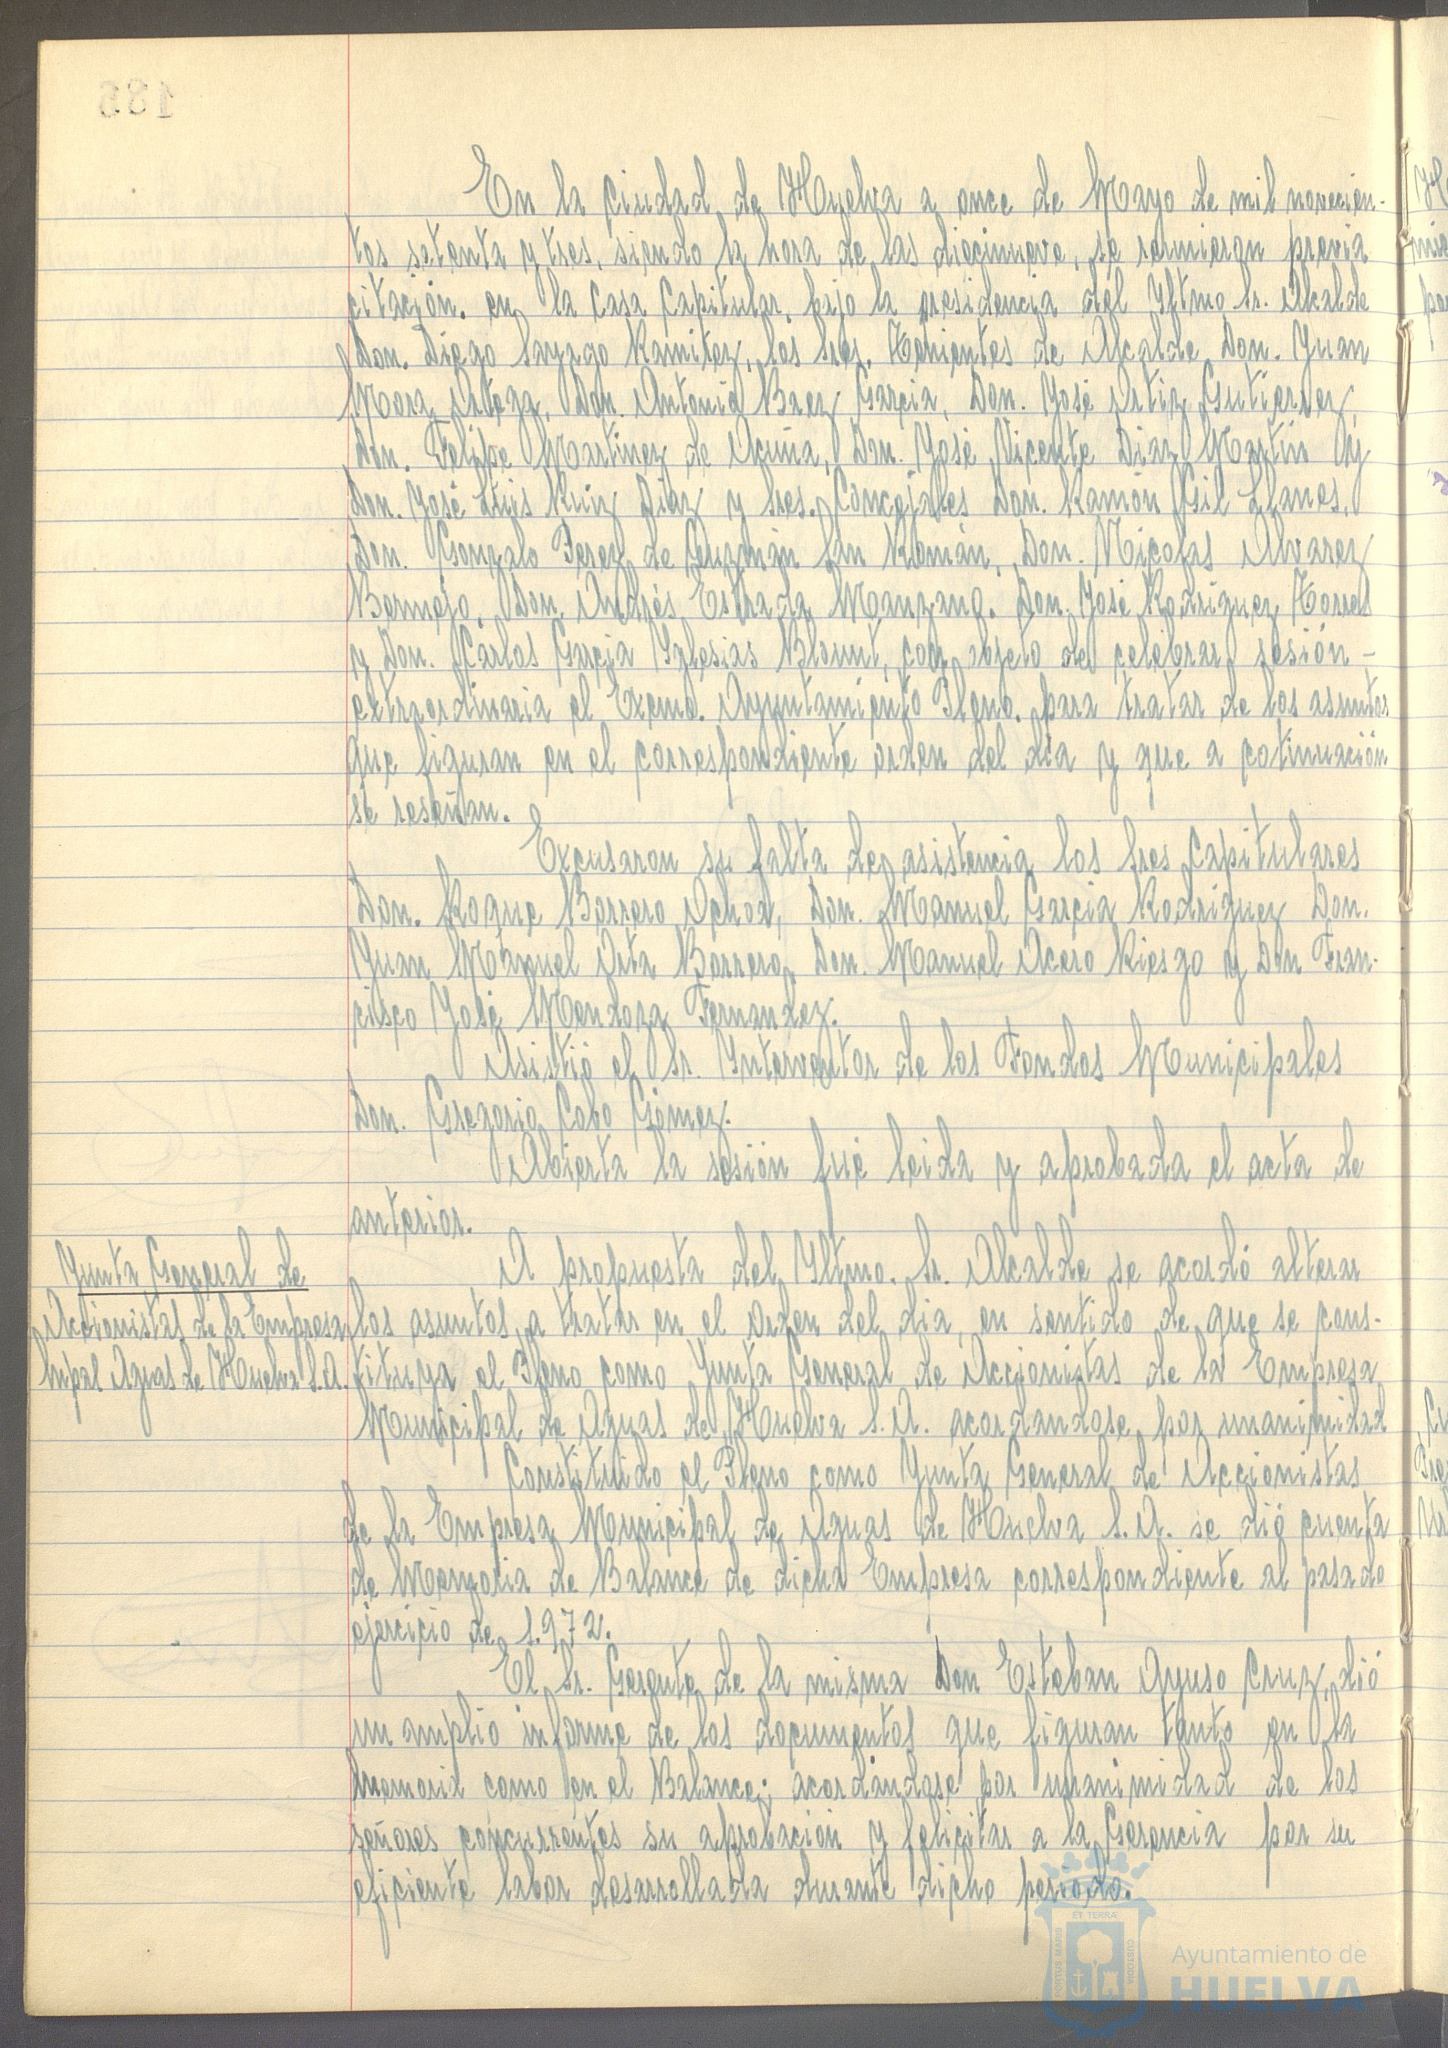 En la Ciudad de Huelva a once de Mayo de mil novecien-
tos setenta y tres, siendo la hora de las diecinueve, se reunieron previa
citación. en la Casa Capitular, bajo la presidencia del Yltmo. Sr. Alcalde
Don. Diego Sayago Ramirez, los Sres. Tenientes de Alcalde Don. Yuan
Mora Ortega, Don. Antonio Baez Garcia, Don. Yosé Ortiz Gutierrez,
Don. Felipe Martinez de Acuña, Don. Yosé Vicente Diaz Martin y
Don. Yosé Luis Ruiz Diaz y Sres. Concejales Don. Ramón Gil Llanes,
Don. Gonzalo Perez de Guzmán San Román, Don. Nicolas Alvarez
Bermejo, Don. Andrés Estrada Manzano. Don. Yosé Rodriguez Torres
y Don. Carlos Garcia Yglesias Blount, con objeto de celebrar sesión -
extraordinaria el Excmo. Ayuntamiento Pleno. para tratar de los asuntos
que figuran en el correspondiente orden del dia y que a cotinuación
se reseñan.
Excusaron su falta de asistencia los Sres Capitulares
Don. Roque Barrero Ochoa, Don. Manuel Garcia Rodriguez Don.
Yuan Manuel Orta Borrero, Don. Manuel Acero Riesgo y Don Fran-
cisco Yosé Mendoza Fernandez.
Asistió el Sr. Ynterventor de los Fondos Municipales
Don. Gregorio Cabo Gómez.
Abierta la sesión fué leida y aprobada el acta de
anterior.
Yunta General de
Accionistas de la Empresa
Mpal Aguas de Huelva S.A.
A propuesta del Yltmo. Sr. Alcalde se acordó alterar
los asuntos a tratar en el Orden del dia, en sentido de que se cons-
tituya el Pleno como Yunta General de Accionistas de la Empresa
Municipal de Aguas de Huelva S. A. acordandose por unanimidad
Constituido el Pleno como Yunta General de Accionistas
de la Empresa Municipal de Aguas de Huelva S. A. se dió cuenta
de Memoria de Balance de dicha Empresa correspondiente al pasado
ejercicio de 1.972.
El Sr. Gerente de la misma Don Esteban Ayuso Cruz, dió
un amplio informe de los documentos que figuran tanto en la
Memoria como en el Balance; acordandose por unanimidad de los
señores concurrentes su aprobación y felicitar a la Gerencia por su
eficiente labor desarrollada durante dicho periodo.
ET TERRÆ
PORTUS MARIS
CUSTODIA
Ayuntamiento de
HUELVA